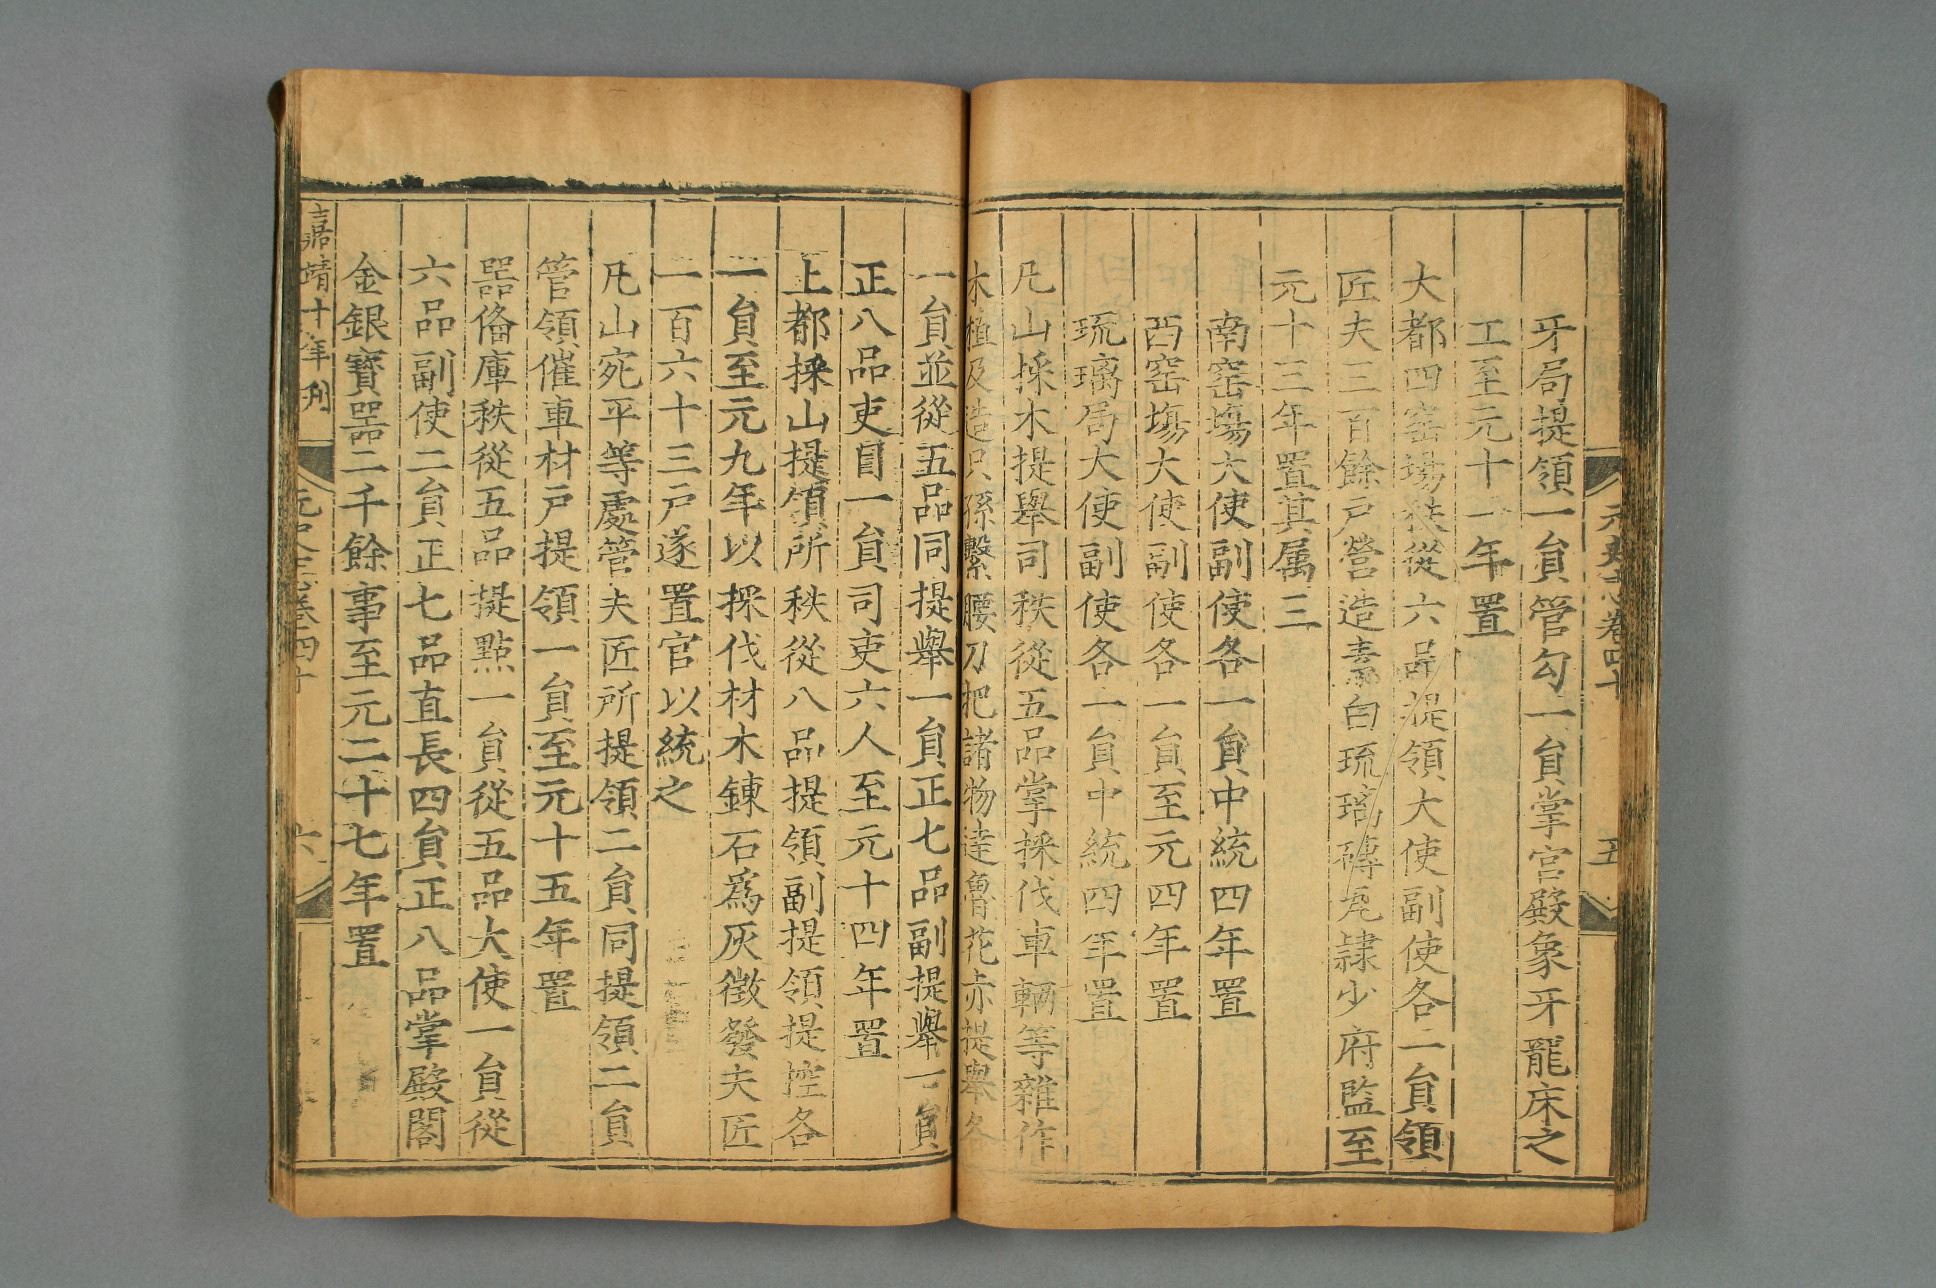 元史志卷四十
五
牙局提領一員管勾一員掌宮殿象牙龍床之
工至元十一年置
大都四窑場秩從六品提領大使副使各一員領
匠夫三百餘戶營造素白琉璃磚瓦隷少府監至
元十三年置其属三
南窑塲大使副使各一員中統四年置
西窑塲大使副使各一員至元四年置
琉璃局大使副使各一員中統四年置
凡山採木提舉司秩從五品掌採伐車輛等雜作
木植及造只孫繫腰刀把諸物達魯花赤提舉各
一員並從五品同提舉一員正七品副提舉一員
正八品吏目一員司吏六人至元十四年置
上都採山提領所秩從八品提領副提領提控各
一員至元九年以採伐材木錬石爲灰徵發夫匠
一百六十三戶遂置官以統之
凡山宛平等處管夫匠所提領二員同提領二員
管領催車材戶提領一員至元十五年置
器偹庫秩從五品提點一員從五品大使一員從
六品副使二員正七品直長四員正八品掌殿閣
金銀寳器二千餘事至元二十七年置
嘉靖十年刋
元史志卷四十
六